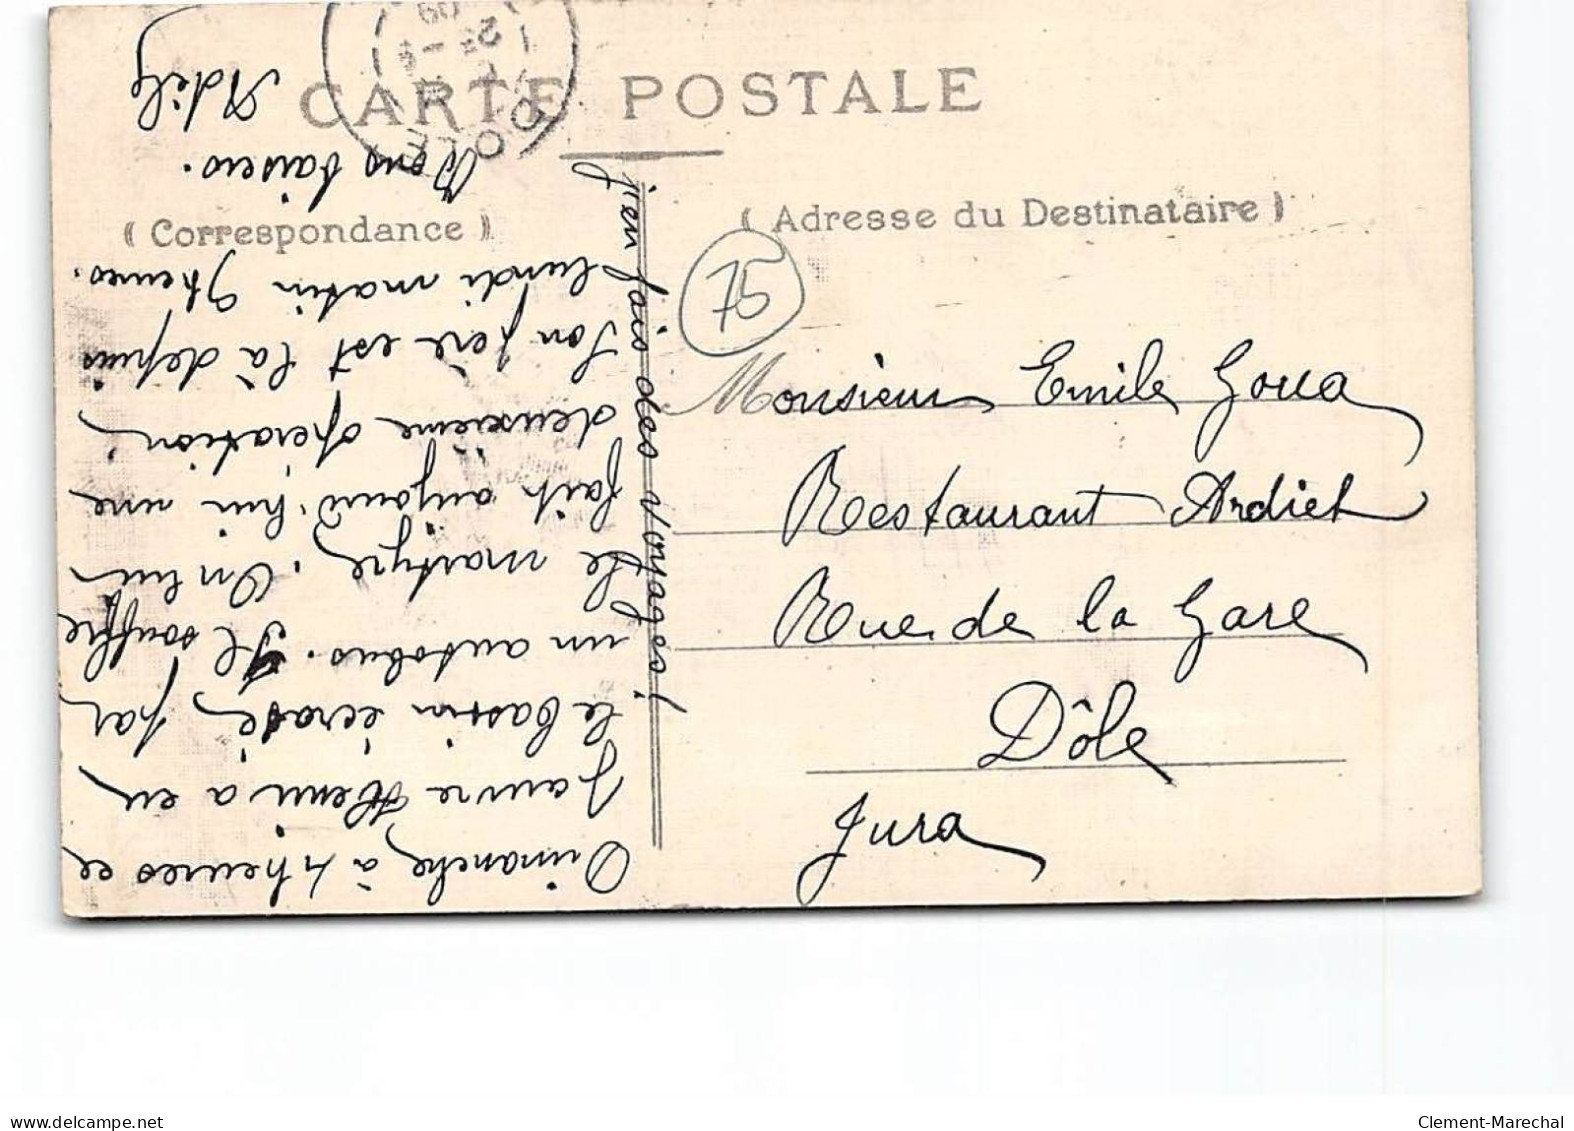 CARTE POSTALE
( Correspondance )
( Adresse du Destinataire )
DOLE
25
09
75
Monsieur Emile Goua
Restaurant Ardiet
Rue de la Gare
Dôle
Jura
Dimanche à 4 heures ce
pauvre Henri a eu
le bassin écrasé par
un autobus. Il souffre
le martyre. On lui
fait aujourd'hui une
deuxième opération,
Son père est là depuis
lundi matin 9 heures.
Bons baisers.
Adèle
j'en fais des voyages!
delcampe.net
Clement-Marechal